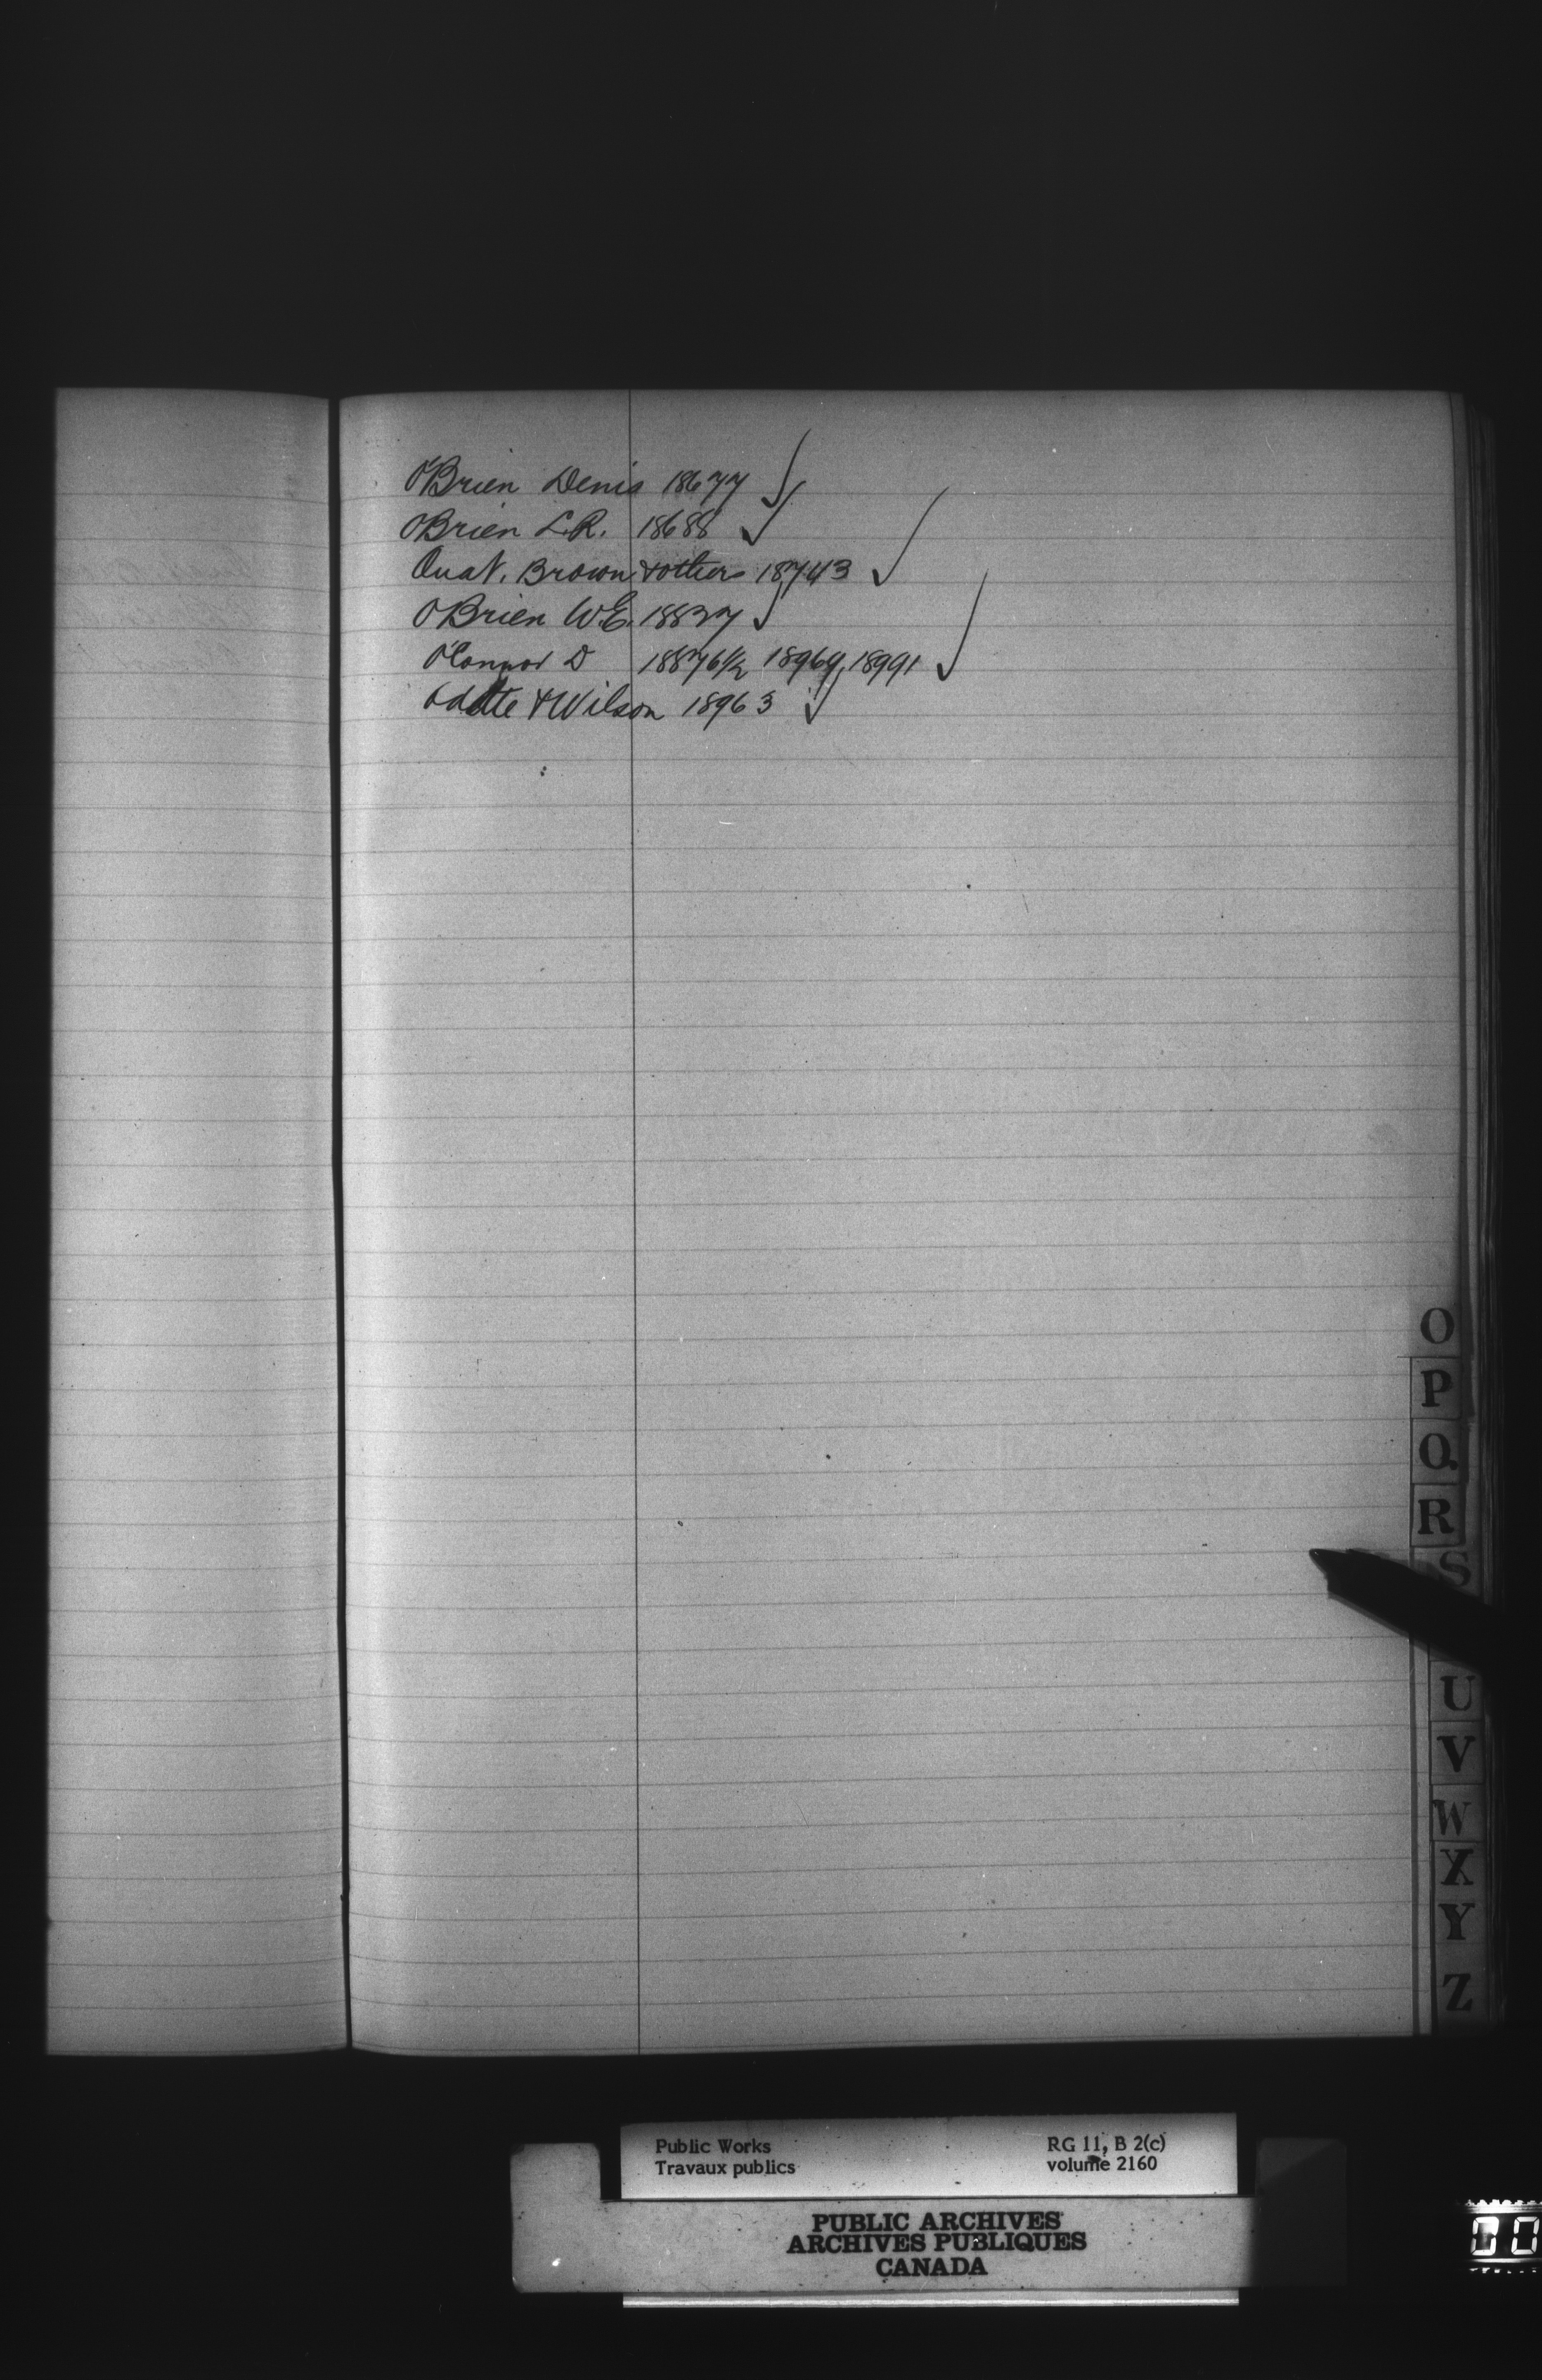 O'Brien Denis 18677 ✓
O'Brien L.R. 18688 ✓
Brown & others 18743 ✓
O'Brien W.E. 18837 ✓
O'Connor D 18876½ 18969, 18991 ✓
Odette & Wilson 18963 ✓
O
P
Q.
R
S
U
V
W
X
Y
Z
Public Works RG 11, B 2(c)
Travaux publics volume 2160
PUBLIC ARCHIVES
ARCHIVES PUBLIQUES
CANADA
00